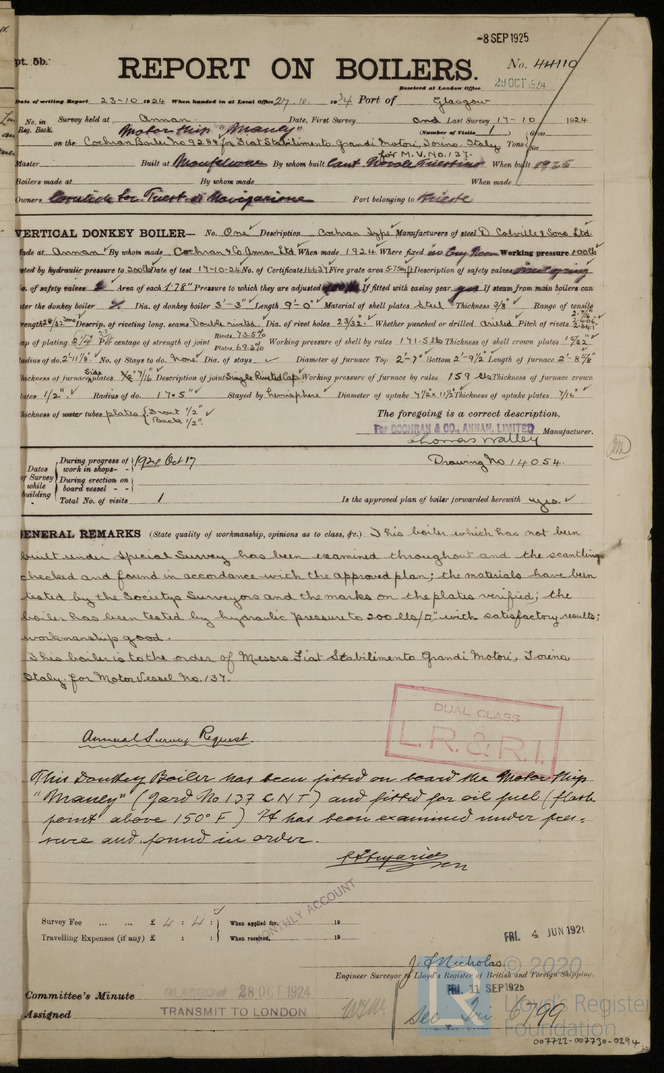 -8 SEP 1925
pt. 5b.
No. 44110
REPORT ON BOILERS.
Received at London Office
29 OCT 1924
Date of writing Report 23-10 1924 When handed in at Local Office 27.10. 1924 Port of Glasgow
No. in Reg. Book. Survey held at Annan Date, First Survey and Last Survey 17-10 1924
(Number of Visits 1)
on the Motor Ship "Manly"
Cochran Boiler No 9288 for Fiat Stabilimento Grandi Motori, Torino, Italy
for M.V. No. 137.
Master Built at Monfalcone By whom built Cant. Navale Triestino When built 1925
Boilers made at By whom made When made
Owners Port belonging to Trieste
VERTICAL DONKEY BOILER— No. One Description Cochran Type Manufacturers of steel D. Colville & Sons Ltd
ade at Annan By whom made Cochran & Co Annan Ltd When made 1924 Where fixed Working pressure 100 lb
ted by hydraulic pressure to 200 lb Date of test 17-10-24 No. of Certificate 16637 Fire grate area Description of safety valves
o. of safety valves 2 Area of each 7.78" Pressure to which they are adjusted If fitted with easing gear yes If steam from main boilers can
ter the donkey boiler Dia. of donkey boiler 3'-3" Length 9'-0" Material of shell plates Steel Thickness 3/8" Range of tensile
rength Descrip. of riveting long. seams Double riveted Dia. of rivet holes 23/32" Whether punched or drilled drilled Pitch of rivets
ap of plating Per centage of strength of joint Rivets 73.5% Plates 69.2% Working pressure of shell by rules 171.5 lb Thickness of shell crown plates 19/32"
adius of do. 2'-11 5/8" No. of Stays to do. None Dia. of stays Diameter of furnace Top 2'-7" Bottom 2'-9 1/2" Length of furnace
hickness of furnace plates Description of joint Single Riveted Lap Working pressure of furnace by rules 159 lb Thickness of furnace crown
lates 1/2" Radius of do. 1'-5" Stayed by hemisphere Diameter of uptake Thickness of uptake plates 7/16"
hickness of water tubes plates Front 1/2" Back 1/2"
The foregoing is a correct description.
For COCHRAN & CO., ANNAN, LIMITED Manufacturer.
Thomas Walley
Dates of Survey while building
During progress of work in shops - - 1924 Oct 17
During erection on board vessel - -
Total No. of visits 1
Drawing No 14054.
Is the approved plan of boiler forwarded herewith yes.
GENERAL REMARKS (State quality of workmanship, opinions as to class, &c.) This boiler which has not been
built under Special Survey has been examined throughout and the scantlings
checked and found in accordance with the approved plan; the materials have been
tested by the Society's Surveyors and the marks on the plates verified; the
boiler has been tested by hydraulic pressure to 200 lbs/□" with satisfactory results;
workmanship good.
This boiler is to the order of Messrs Fiat Stabilimento Grandi Motori, Torino,
Italy for Motor Vessel No. 137.
DUAL CLASS
L.R. & R.I.
Annual Survey Request.
This Donkey Boiler has been fitted on board the Motor Ship
"Manly" (Yard No 137 CNT) and fitted for oil fuel (flash
point above 150°F) It has been examined under pres-
sure and found in order.
Survey Fee ... ... £ 4 : 4 : When applied for, 19
MONTHLY ACCOUNT
Travelling Expenses (if any) £ : : When received, 19
FRI. 4 JUN 1926
J. S. Nicholas
Engineer Surveyor to Lloyd's Register of British and Foreign Shipping.
Committee's Minute GLASGOW 28 OCT 1924
FRI. 11 SEP 1925
Assigned TRANSMIT TO LONDON
See Tri 6799
© 2020
Lloyd's Register
Foundation
007722-007730-0294